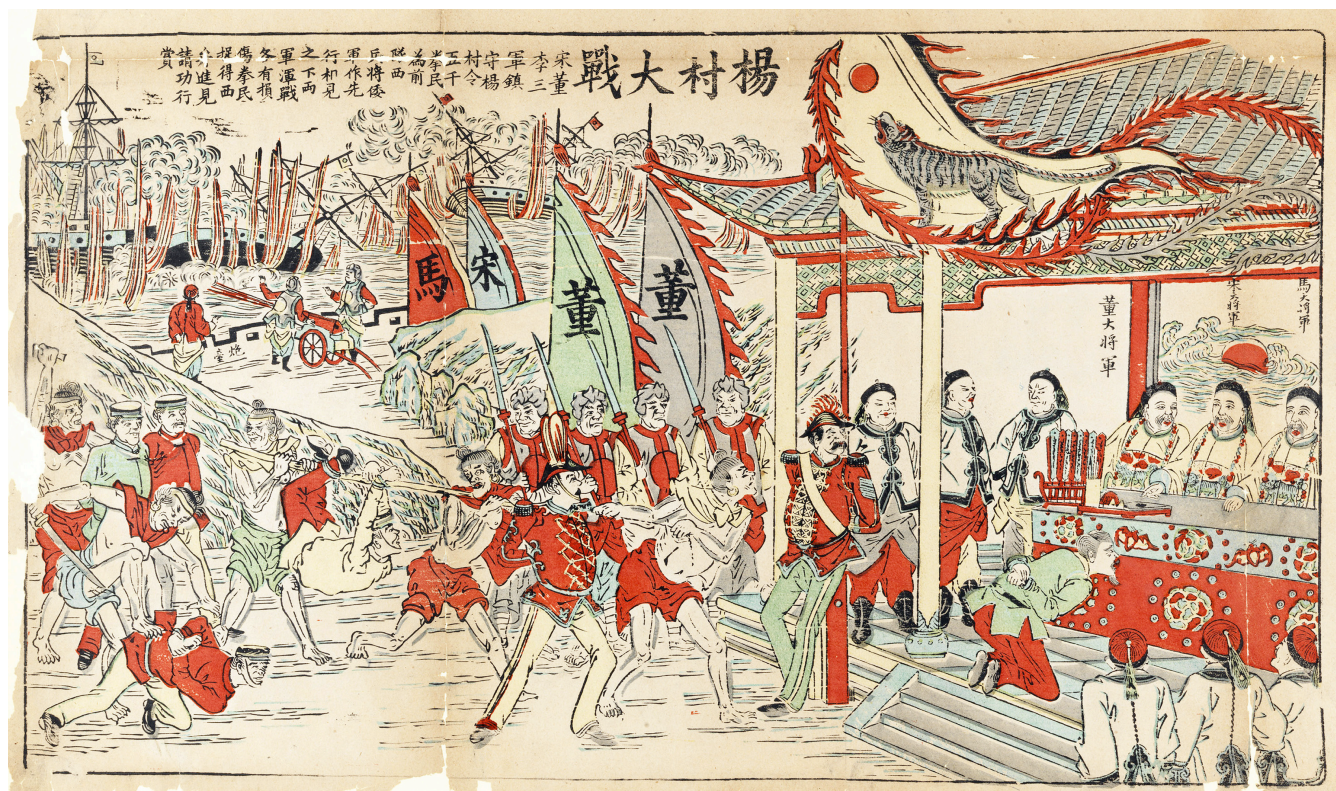 楊村大戰
宋董
李三
軍鎮
守楊
村令
五千
拳民
為前
隊西
兵將倭
軍作先
行相見
之下兩
軍渾戰
各有損
傷拳民
捉得西
兵進見
請功行
賞
馬大將軍
宋大將軍
董大將軍
董
董
宋
馬
炮臺